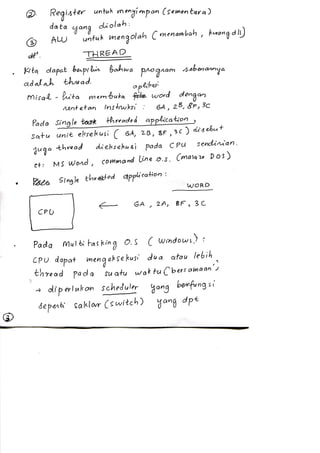 ② Register untuk menyimpan (sementara)
data yang diolah.
③ ALU untuk mengolah (menambah, kurang dll)
dt'.
THREAD
• Kita dapat berpikir bahwa program sebenarnya
adalah thread.
aplikasi
Misal - kita membuka word dengan
rentetan instruksi : 6A, 2B, 8F, 3C
Pada single threaded application,
satu unit eksekusi (6A, 2B, 8F, 3C) disebut
juga thread dieksekusi pada CPU sendirian.
ct: MS Word, command line O.S. (masa DOS)
• Single threaded application :
WORD
CPU ← 6A, 2A, 8F, 3C
• Pada Multi tasking O.S (Windows) :
CPU dapat mengeksekusi dua atau lebih
thread pada suatu waktu (bersamaan)
→ diperlukan scheduler yang berfungsi
seperti saklar (switch) yang dpt
③